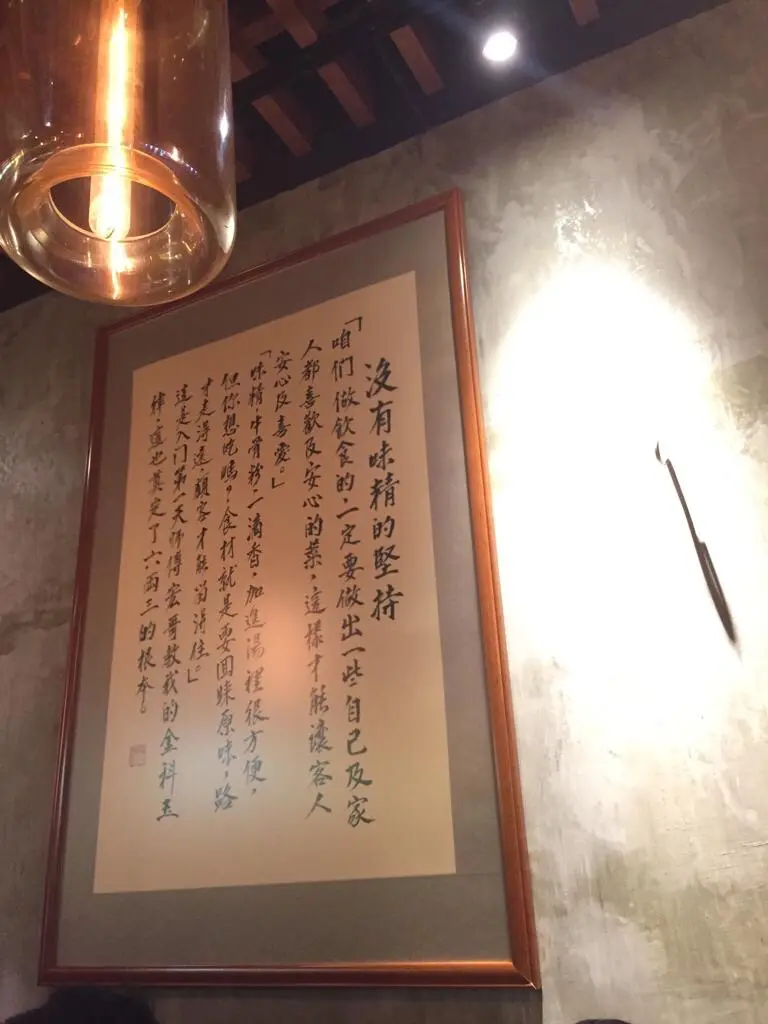 沒有味精的堅持
「咱们做飲食的，一定要做出一些自己及家
人都喜歡及安心的菜，這樣才能讓客人
安心及喜愛。」
「味精，牛骨粉，一滴香，加進湯裡很方便，
但你想吃嗎？食材就是要回味原味，路
才走得遠，顧客才能留得住。」
這是入门第一天师傅宏哥教我的金科玉
律，這也奠定了六兩三的根本。